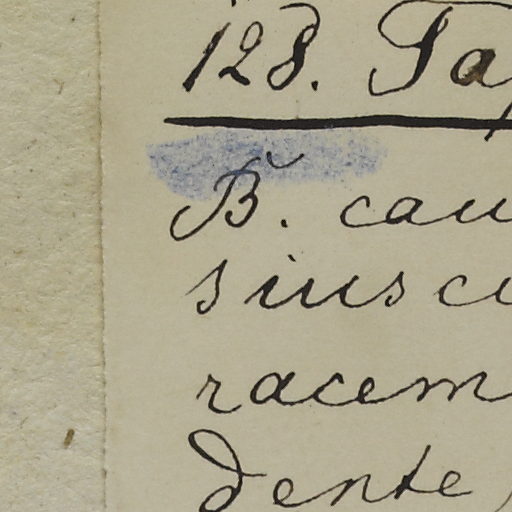 128. Tap
B. cau
siuscu
racem
dente,